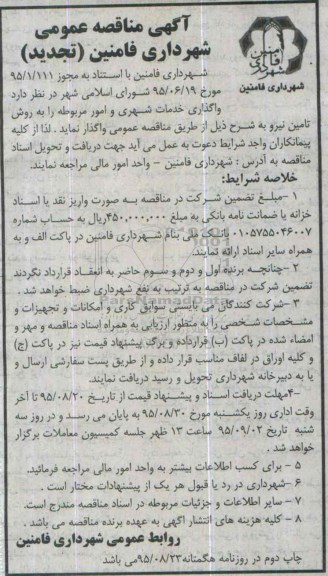 آگهی مناقصه عمومی
شهرداری فامنین (تجدید)
شهرداری فامنین
شهرداری فامنین با استناد به مجوز ۹۵/۱/۱۱۱
مورخ ۹۵/۰۶/۱۹ شورای اسلامی شهر در نظر دارد
واگذاری خدمات شهری و امور مربوطه را به روش
تامین نیرو به شرح ذیل از طریق مناقصه عمومی واگذار نماید . لذا از کلیه
پیمانکاران واجد شرایط دعوت به عمل می آید جهت دریافت و تحویل اسناد
مناقصه به آدرس : شهرداری فامنین - واحد امور مالی مراجعه نمایند.
خلاصه شرایط:
۱ -مبلغ تضمین شرکت در مناقصه به صورت واریز نقد یا اسناد
خزانه یا ضمانت نامه بانکی به مبلغ ۴۵۰,۰۰۰,۰۰۰ریال به حساب شماره
۰۱۰۵۷۵۵۰۴۶۰۰۷ بانک ملی بنام شهرداری فامنین در پاکت الف و به
همراه سایر اسناد ارائه نمایند.
۲ -چنانچه برنده اول و دوم و سوم حاضر به انعقاد قرارداد نگردند
تضمین شرکت در مناقصه به ترتیب به نفع شهرداری ضبط خواهد شد .
۳ -شرکت کنندگان می بایستی سوابق کاری و امکانات و تجهیزات و
مشخصات شخصی را به منظور ارزیابی به همراه اسناد مناقصه و مهر و
امضاء شده در پاکت (ب) قرارداده و برگ پیشنهاد قیمت نیز در پاکت (ج)
و کلیه اوراق در لفاف مناسب قرار داده و از طریق پست سفارشی ارسال و
یا به دبیرخانه شهرداری تحویل و رسید دریافت نمایند.
۴-مهلت دریافت اسناد و پیشنهاد قیمت از تاریخ ۹۵/۰۸/۲۰ تا آخر
وقت اداری روز یکشنبه مورخ ۹۵/۰۸/۳۰ به پایان می رسد و در روز سه
شنبه تاریخ ۹۵/۰۹/۰۲ ساعت ۱۳ ظهر جلسه کمیسیون معاملات برگزار
خواهد شد .
۵ - برای کسب اطلاعات بیشتر به واحد امور مالی مراجعه فرمائید.
۶ -شهرداری در رد یا قبول هر یک از پیشنهادات مختار است .
۷ - سایر اطلاعات و جزئیات مربوطه در اسناد مناقصه مندرج است.
۸ - کلیه هزینه های انتشار آگهی به عهده برنده مناقصه می باشد .
روابط عمومی شهرداری فامنین
چاپ دوم در روزنامه هگمتانه۹۵/۰۸/۲۳می باشد